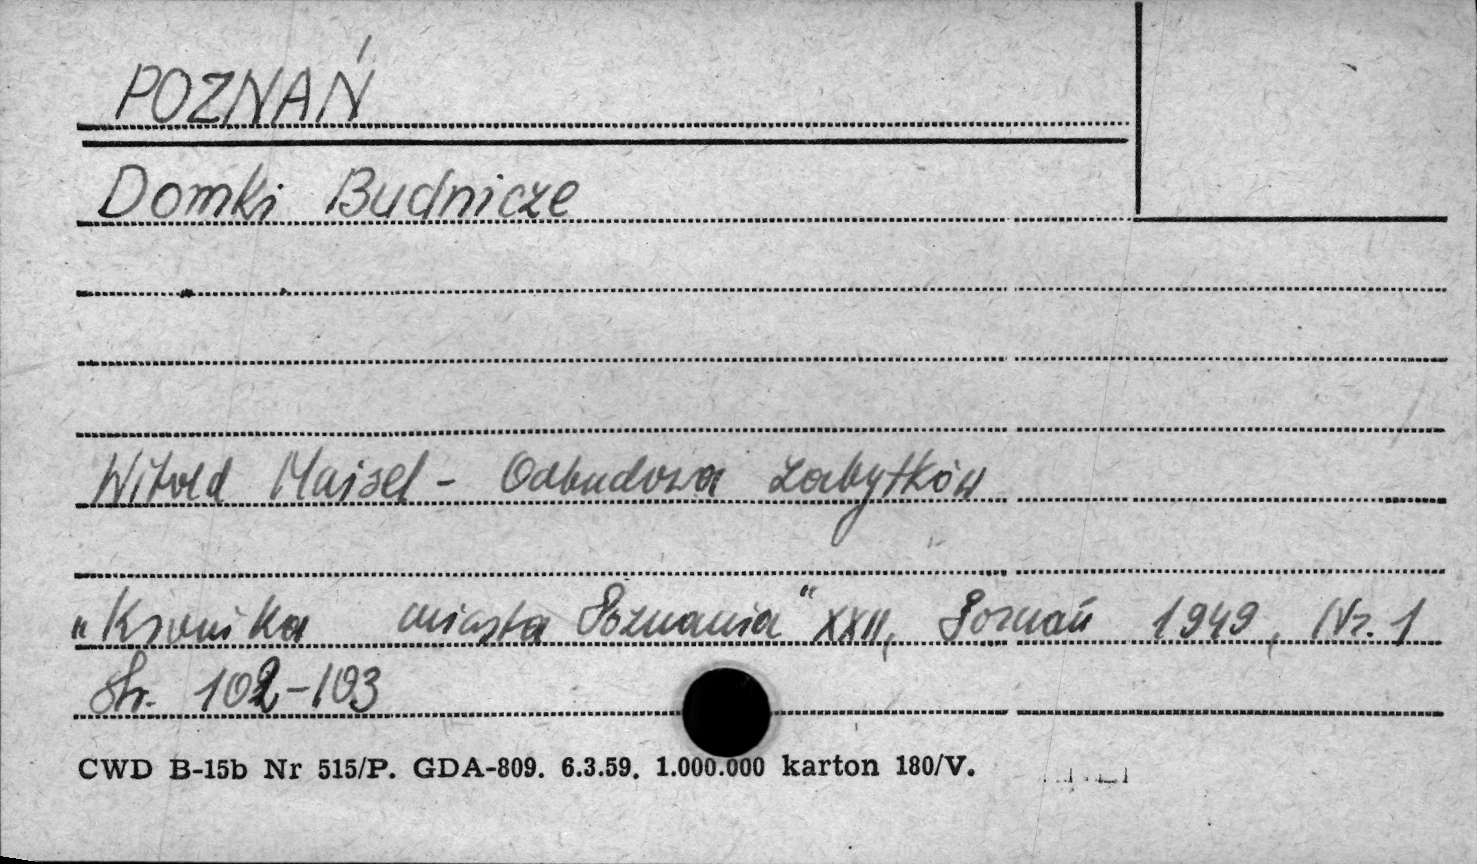 POZNAŃ
Domki Budnicze
Witold Maisel - Odbudowa zabytków
"Kronika miasta Poznania" XXII, Poznań 1949, Nr. 1
Str. 102-103
CWD B-15b Nr 515/P. GDA-809. 6.3.59. 1.000.000 karton 180/V.